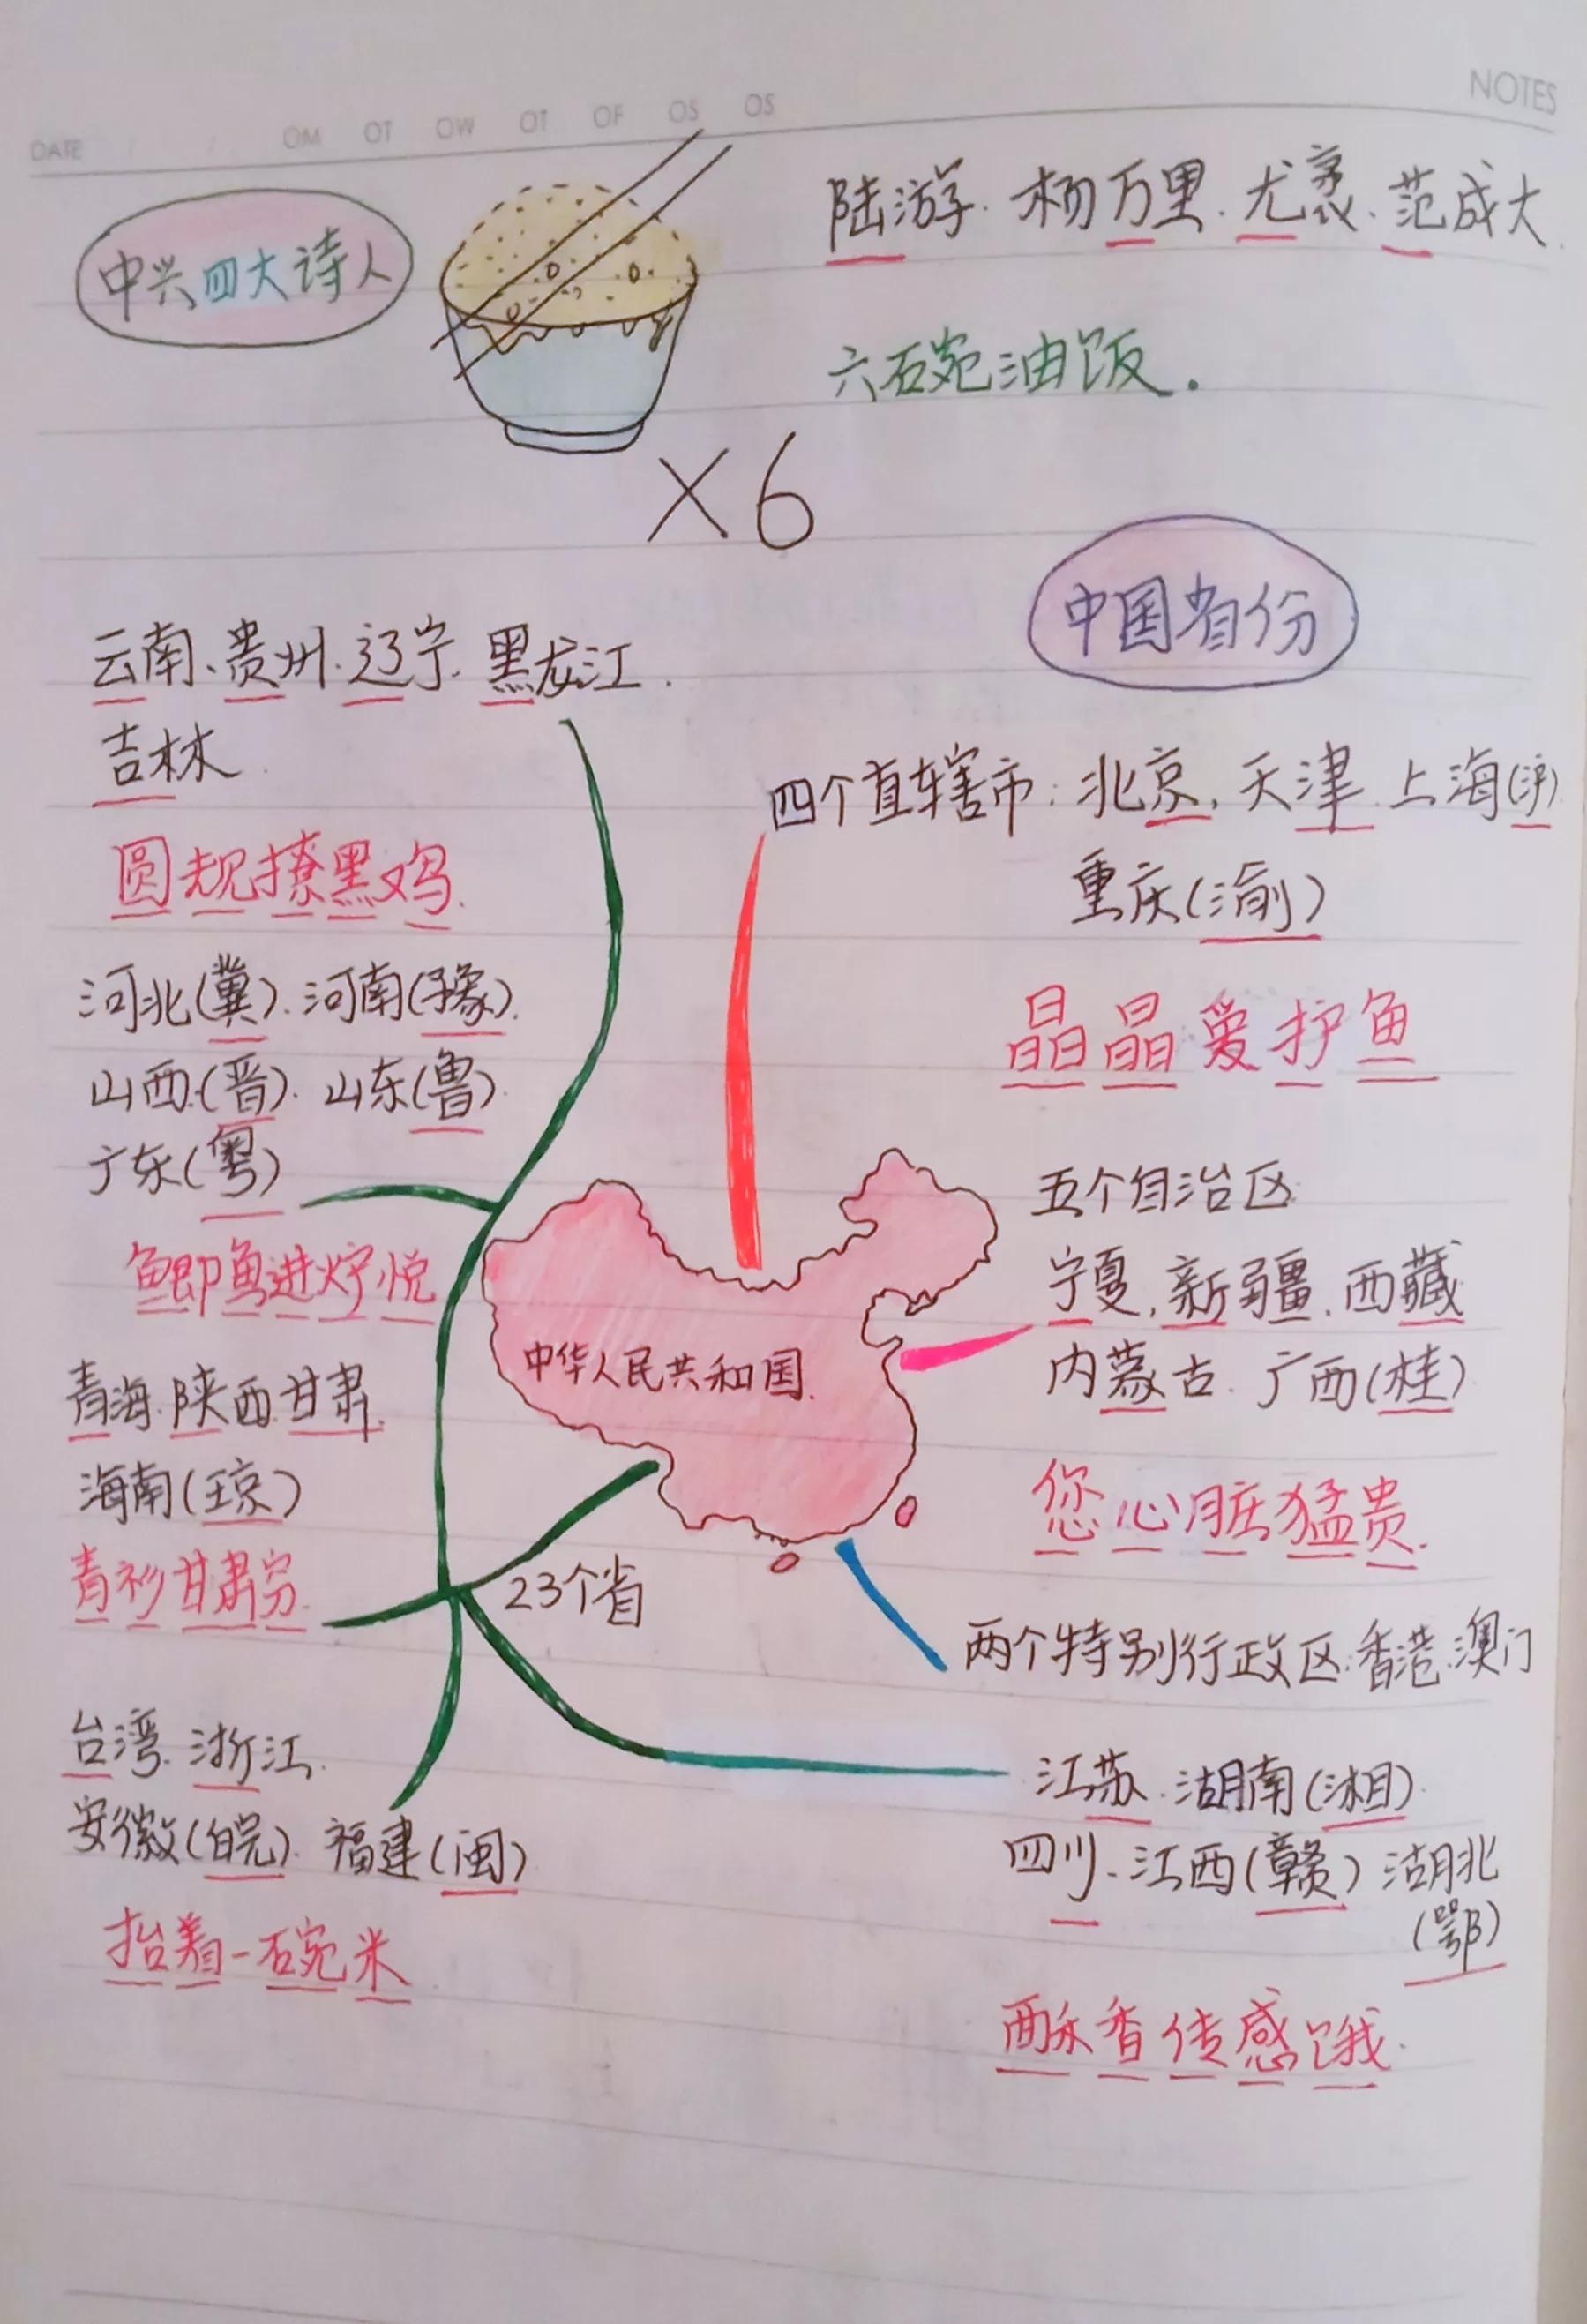 NOTES
DATE / / OM OT OW OT OF OS OS
中兴四大诗人
陆游.杨万里.尤袤.范成大.
六碗油饭.
×6
中国省份
云南、贵州.辽宁.黑龙江.
吉林
圆规撩黑鸡.
河北(冀).河南(豫).
山西.(晋).山东(鲁).
广东(粤)
鲫鱼进炉悦
青海.陕西.甘肃.
海南(琼)
青衫甘肃穷.
台湾.浙江.
安徽(皖).福建(闽)
抬着一碗米
四个直辖市:北京,天津.上海(沪)
重庆(渝)
晶晶爱护鱼
五个自治区
宁夏,新疆.西藏
内蒙古.广西(桂)
您心脏猛贵.
两个特别行政区:香港.澳门
中华人民共和国.
23个省
江苏.湖南(湘).
四川.江西(赣)湖北
(鄂)
酥香传感饿.